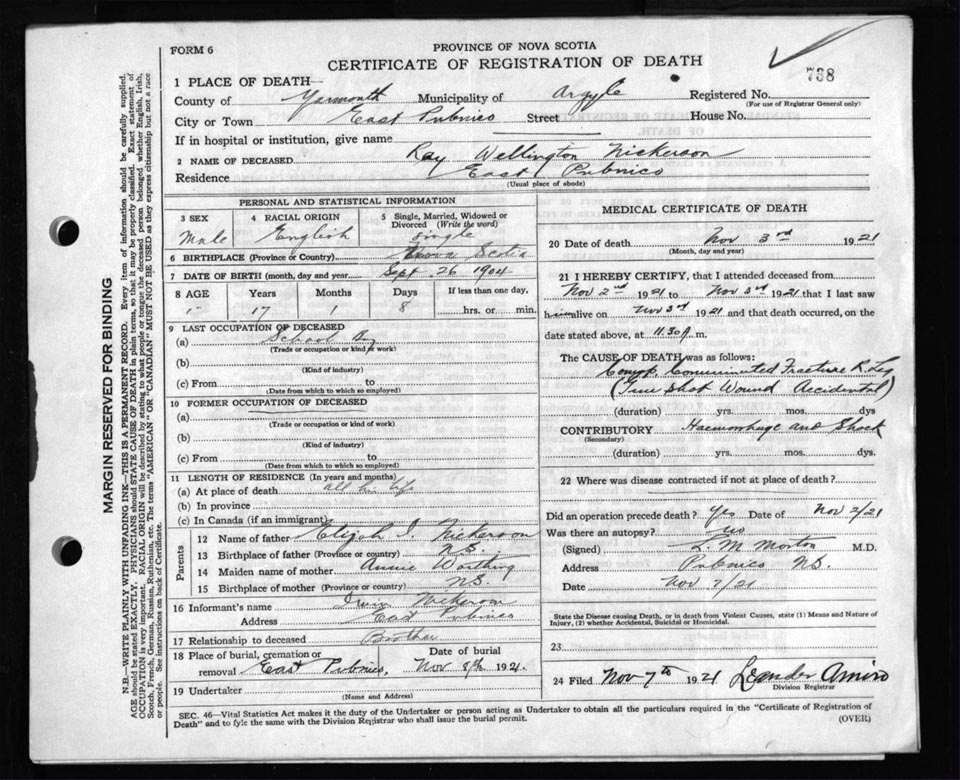 FORM 6
PROVINCE OF NOVA SCOTIA
CERTIFICATE OF REGISTRATION OF DEATH
738
1 PLACE OF DEATH—
County of Yarmouth Municipality of Argyle Registered No.
(For use of Registrar General only)
City or Town East Pubnico Street House No.
If in hospital or institution, give name
2 NAME OF DECEASED Ray Wellington Nickerson
Residence East Pubnico
(Usual place of abode)
PERSONAL AND STATISTICAL INFORMATION
3 SEX 4 RACIAL ORIGIN 5 Single, Married, Widowed or Divorced (Write the word)
Male English Single
6 BIRTHPLACE (Province or Country) Nova Scotia
7 DATE OF BIRTH (month, day and year) Sept. 26 1904
8 AGE Years Months Days If less than one day,
17 1 8 hrs. or min.
9 LAST OCCUPATION OF DECEASED
(a) School Boy
(Trade or occupation or kind of work)
(b)
(Kind of industry)
(c) From to
(Date from which to which so employed)
10 FORMER OCCUPATION OF DECEASED
(a)
(Trade or occupation or kind of work)
(b)
(Kind of industry)
(c) From to
(Date from which to which so employed)
11 LENGTH OF RESIDENCE (In years and months)
(a) At place of death all his life
(b) In province
(c) In Canada (if an immigrant)
Parents
12 Name of father Elijah I. Nickerson
13 Birthplace of father (Province or country) N.S.
14 Maiden name of mother Annie Worthing
15 Birthplace of mother (Province or country) N.S.
16 Informant's name Nickerson
Address East Pubnico
17 Relationship to deceased Brother
18 Place of burial, cremation or removal East Pubnico, Date of burial Nov 8th 1921.
19 Undertaker
(Name and Address)
MEDICAL CERTIFICATE OF DEATH
20 Date of death Nov 3rd 1921
(Month, day and year)
21 I HEREBY CERTIFY, that I attended deceased from
Nov 2nd 1921 to Nov 3rd 1921 that I last saw
him alive on Nov 3rd 1921 and that death occurred, on the
date stated above, at 11.30 m.
The CAUSE OF DEATH was as follows:
Comp. Comminuted Fracture R. Leg
(Gun Shot Wound Accidental)
(duration) yrs. mos. dys
CONTRIBUTORY Haemorrhage and Shock
(Secondary)
(duration) yrs. mos. dys.
22 Where was disease contracted if not at place of death?
Did an operation precede death? Yes Date of Nov 2/21
Was there an autopsy? no
(Signed) L. M. Morton M.D.
Address Pubnico N.S.
Date Nov 7/21
State the Disease causing Death, or in death from Violent Causes, state (1) Means and Nature of
Injury, (2) whether Accidental, Suicidal or Homicidal.
23
24 Filed Nov 7th 1921 Leander Amiro
Division Registrar
SEC. 46—Vital Statistics Act makes it the duty of the Undertaker or person acting as Undertaker to obtain all the particulars required in the "Certificate of Registration of
Death" and to fyle the same with the Division Registrar who shall issue the burial permit. (OVER)
MARGIN RESERVED FOR BINDING
N.B.—WRITE PLAINLY WITH UNFADING INK—THIS IS A PERMANENT RECORD. Every item of information should be carefully supplied.
AGE should be stated EXACTLY. PHYSICIANS should STATE CAUSE OF DEATH in plain terms, so that it may be properly classified. Exact statement of
OCCUPATION is very important. RACIAL ORIGIN will be described by stating to what people or tongue the deceased person belonged whether English, Irish,
Scotch, French, German, Russian, Ruthenian, etc. The terms "AMERICAN" or "CANADIAN" MUST NOT BE USED as they express citizenship but not a race
or people. See instructions on back of Certificate.